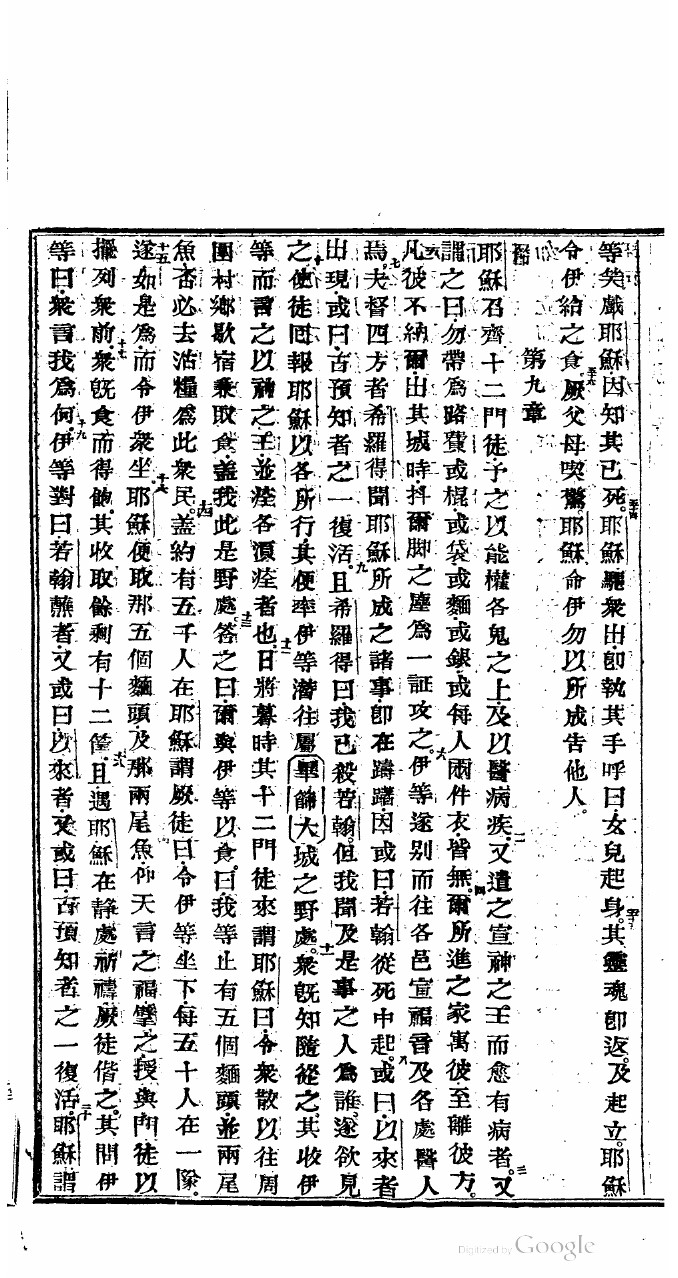 等矣戲耶穌因知其已死。耶穌驅衆出卽執其手呼曰女兒起身。其靈魂卽返。及起立。耶穌
令伊給之食。厥父母喫驚。耶穌命伊勿以所成吿他人。
第九章
耶穌召齊十二門徒予之以能權各鬼之上及以醫病疾。又遣之宣神之王而愈有病者。又
謂之曰勿帶爲路費或棍或袋或麵或銀或每人兩件衣皆無。爾所進之家寓彼至離彼方。
凡彼不納爾出其城時抖爾脚之塵爲一証攻之。伊等遂别而往各邑宣福音及各處醫人
焉。夫督四方者希羅得聞耶穌所成之諸事卽在躊躇因或曰若翰從死中起。或曰以來者
出現或曰古預知者之一復活。且希羅得曰我已殺若翰。但我聞及是事之人爲誰。遂欲見
之。使徒囘報耶穌以各所行。其便率伊等潛往屬畢篩大城之野處。衆旣知隨從之其收伊
等而言之以神之王並痊各須痊者也。日將暮時其十二門徒來謂耶穌曰令衆散以往周
圍村鄉歇宿兼取食蓋我此是野處。答之曰爾與伊等以食。曰我等止有五個麵頭並兩尾
魚否必去沽糧爲此衆民。蓋約有五千人在耶穌謂厥徒曰令伊等坐下每五十人在一隊。
遂如是爲而令伊衆坐。耶穌便取那五個麵頭及那兩尾魚仰天言之福擘之授與門徒以
擺列衆前。衆旣食而得飽。其收取餘剩有十二筐。且遇耶穌在静處祈禱厥徒偕之。其問伊
等曰衆言我爲何。伊等對曰若翰蘸者。又或曰以來者。又或曰古預知者之一復活。耶穌謂
Digitized by Google